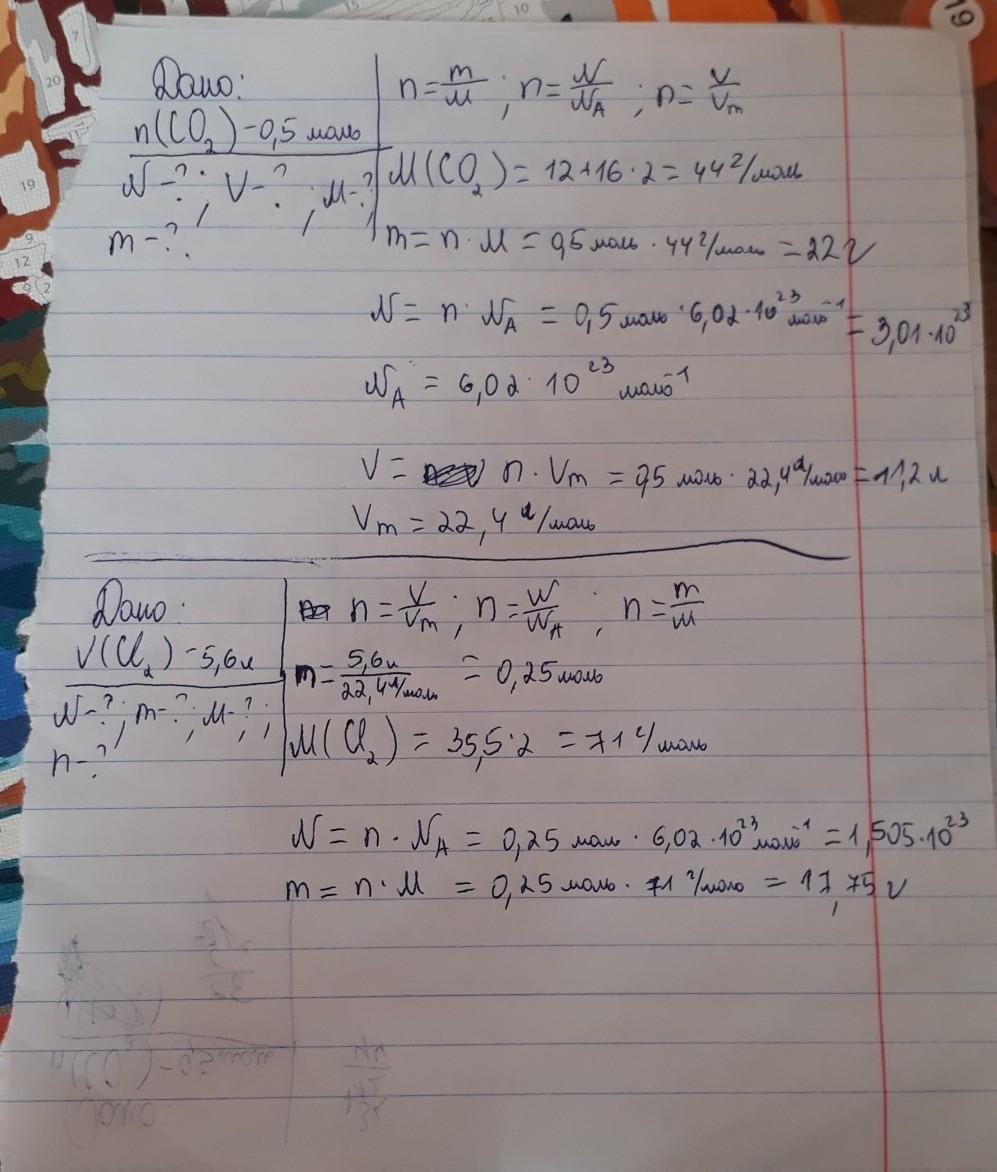 Дано:
n(CO₂) - 0,5 моль
N - ?; V - ?; M - ?
m - ?
n = m/M ; n = N/N_A ; n = V/V_m
M(CO₂) = 12+16·2 = 44 г/моль
m = n · M = 0,5 моль · 44 г/моль = 22 г
N = n · N_A = 0,5 моль · 6,02 · 10²³ моль⁻¹ = 3,01·10²³
N_A = 6,02 · 10²³ моль⁻¹
V = n · V_m = 0,5 моль · 22,4 л/моль = 11,2 л
V_m = 22,4 л/моль
Дано:
V(Cl₂) - 5,6 л
N - ?; m - ?; M - ?;
n - ?
n = V/V_m ; n = N/N_A ; n = m/M
m - 5,6 л / 22,4 л/моль = 0,25 моль
M(Cl₂) = 35,5·2 = 71 г/моль
N = n · N_A = 0,25 моль · 6,02 · 10²³ моль⁻¹ = 1,505·10²³
m = n · M = 0,25 моль · 71 г/моль = 17,75 г
19
20
7
19
9
12
10